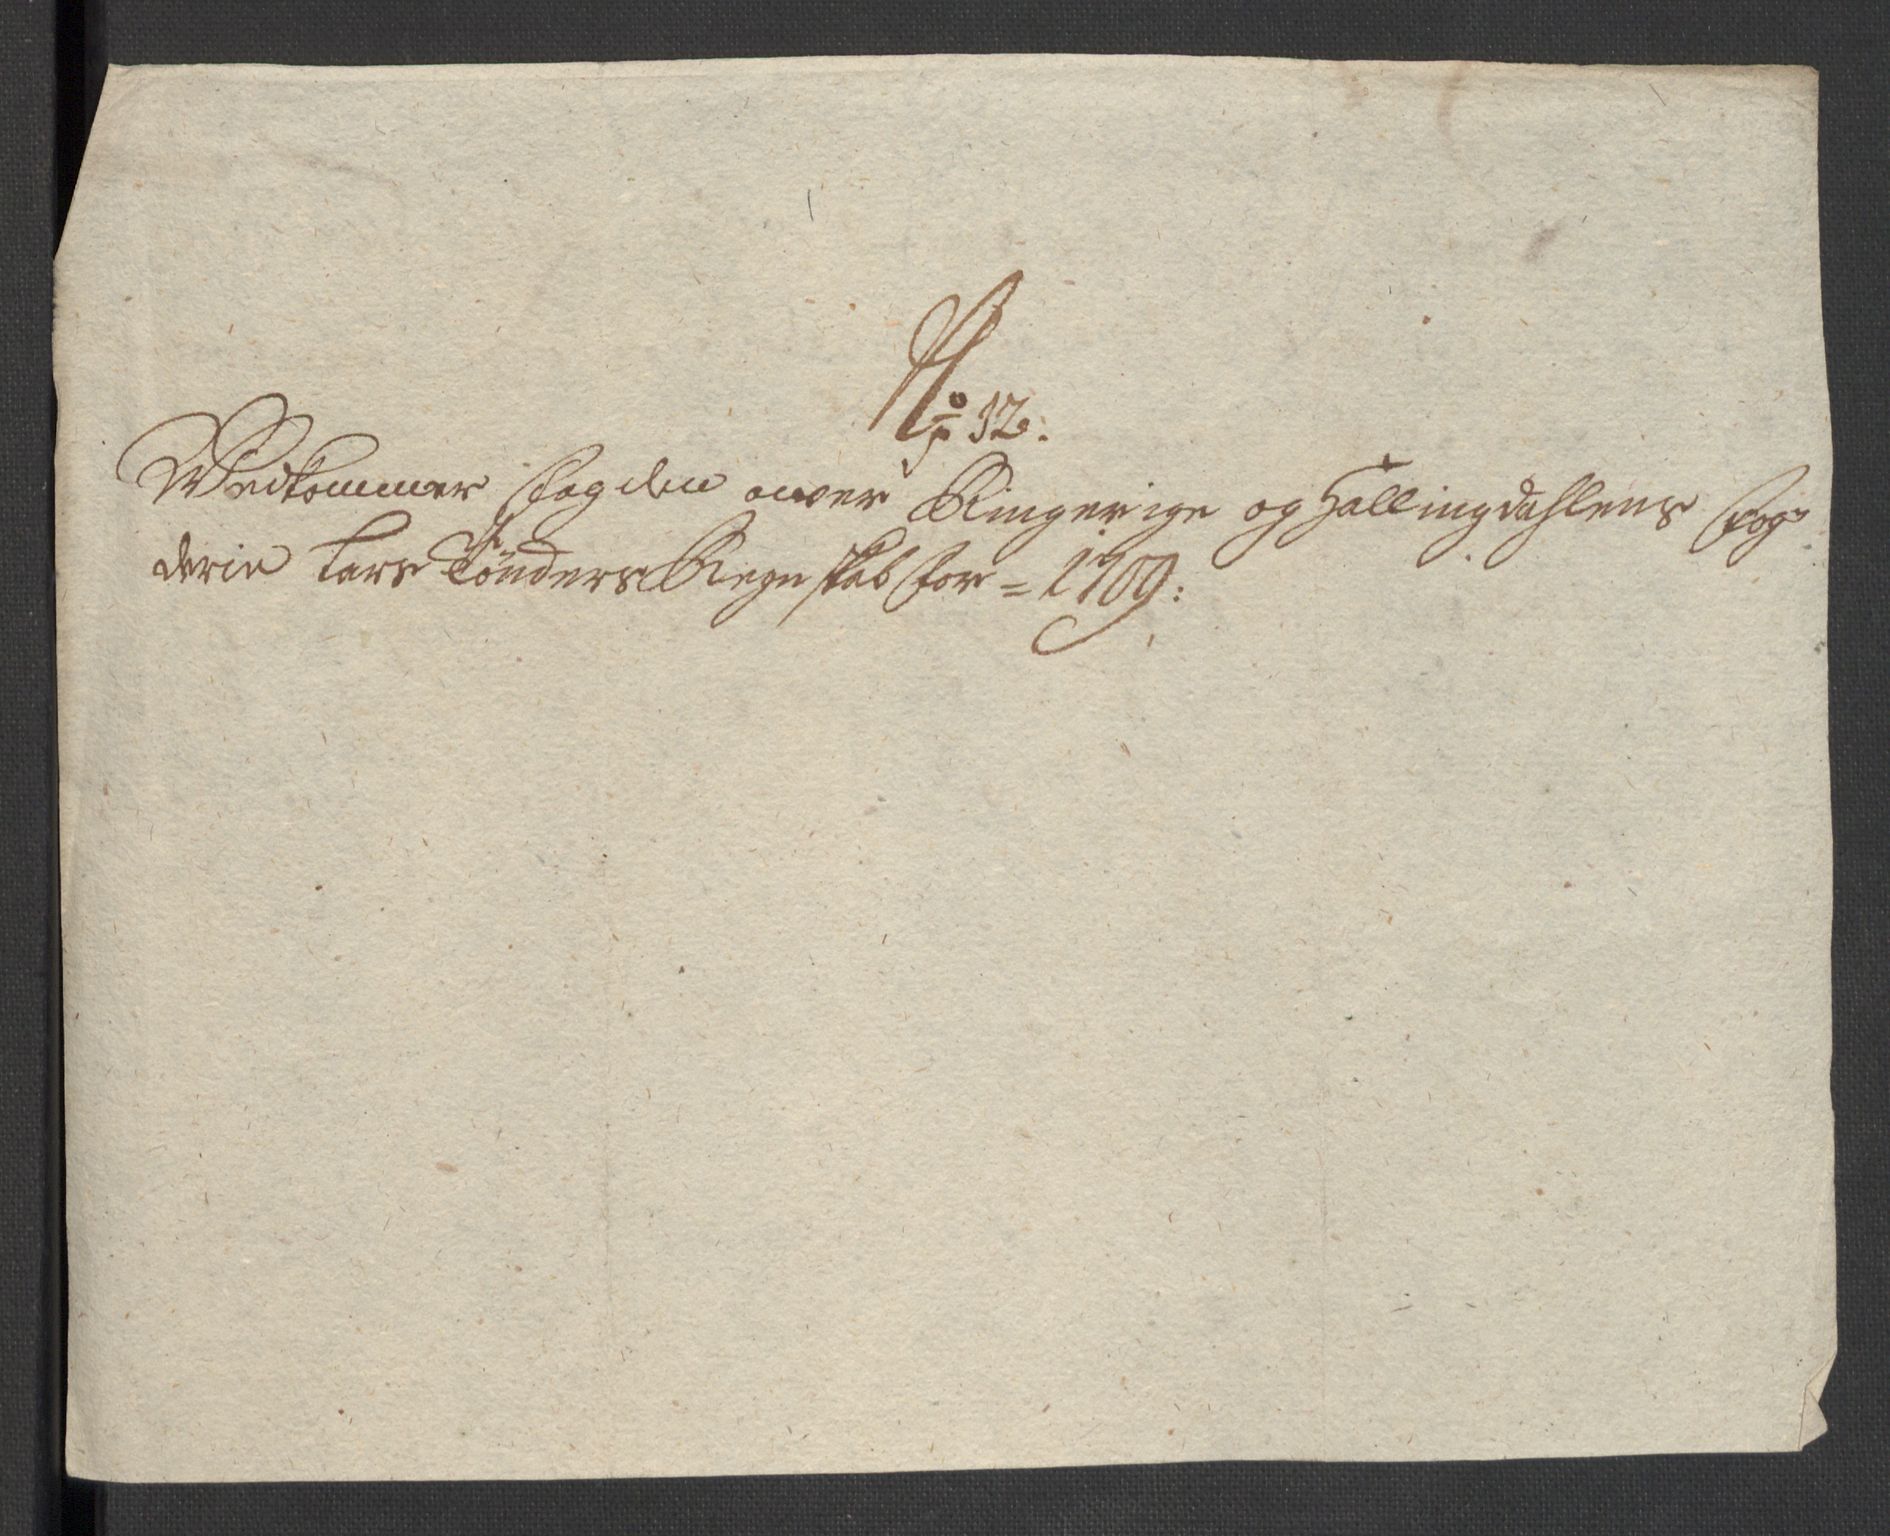 No 12.
Vedkommer fogden ower Ringerige og Hallingdahlens fog¬
derie Lars Tønders Regnskab for = 1709: